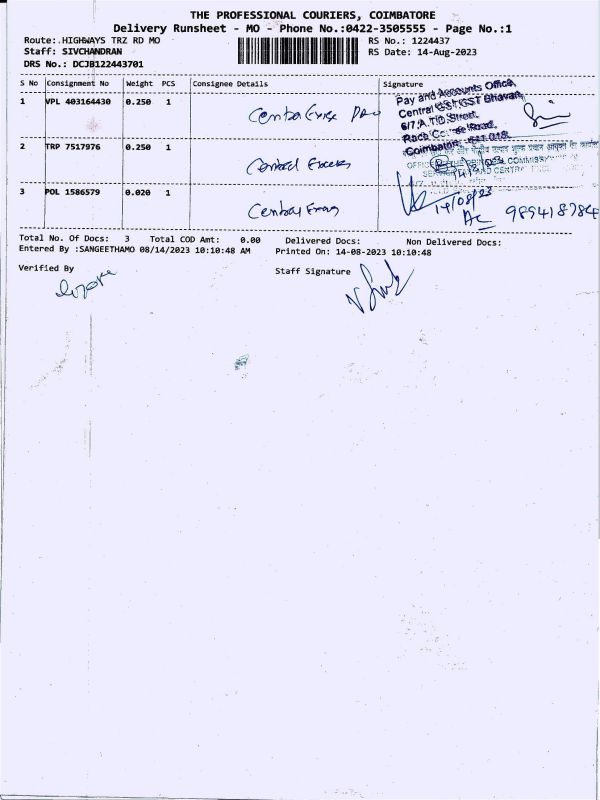 THE PROFESSIONAL COURIERS, COIMBATORE
Delivery Runsheet - MO - Phone No.:0422-3505555 - Page No.:1
Route:.HIGHWAYS TRZ RD MO RS No.: 1224437
Staff: SIVCHANDRAN RS Date: 14-Aug-2023
DRS No.: DCJB122443701
S No Consignment No Weight PCS Consignee Details Signature
1 VPL 403164430 0.250 1
Pay and Accounts Office,
Central GST, GST Bhavan,
6/7, A.T.D. Street,
Race Course Road,
Coimbatore - 641 018.
2 TRP 7517976 0.250 1
3 POL 1586579 0.020 1
14/08/23
Ac 9894187846
Total No. Of Docs: 3 Total COD Amt: 0.00 Delivered Docs: Non Delivered Docs:
Entered By :SANGEETHAMO 08/14/2023 10:10:48 AM Printed On: 14-08-2023 10:10:48
Verified By Staff Signature